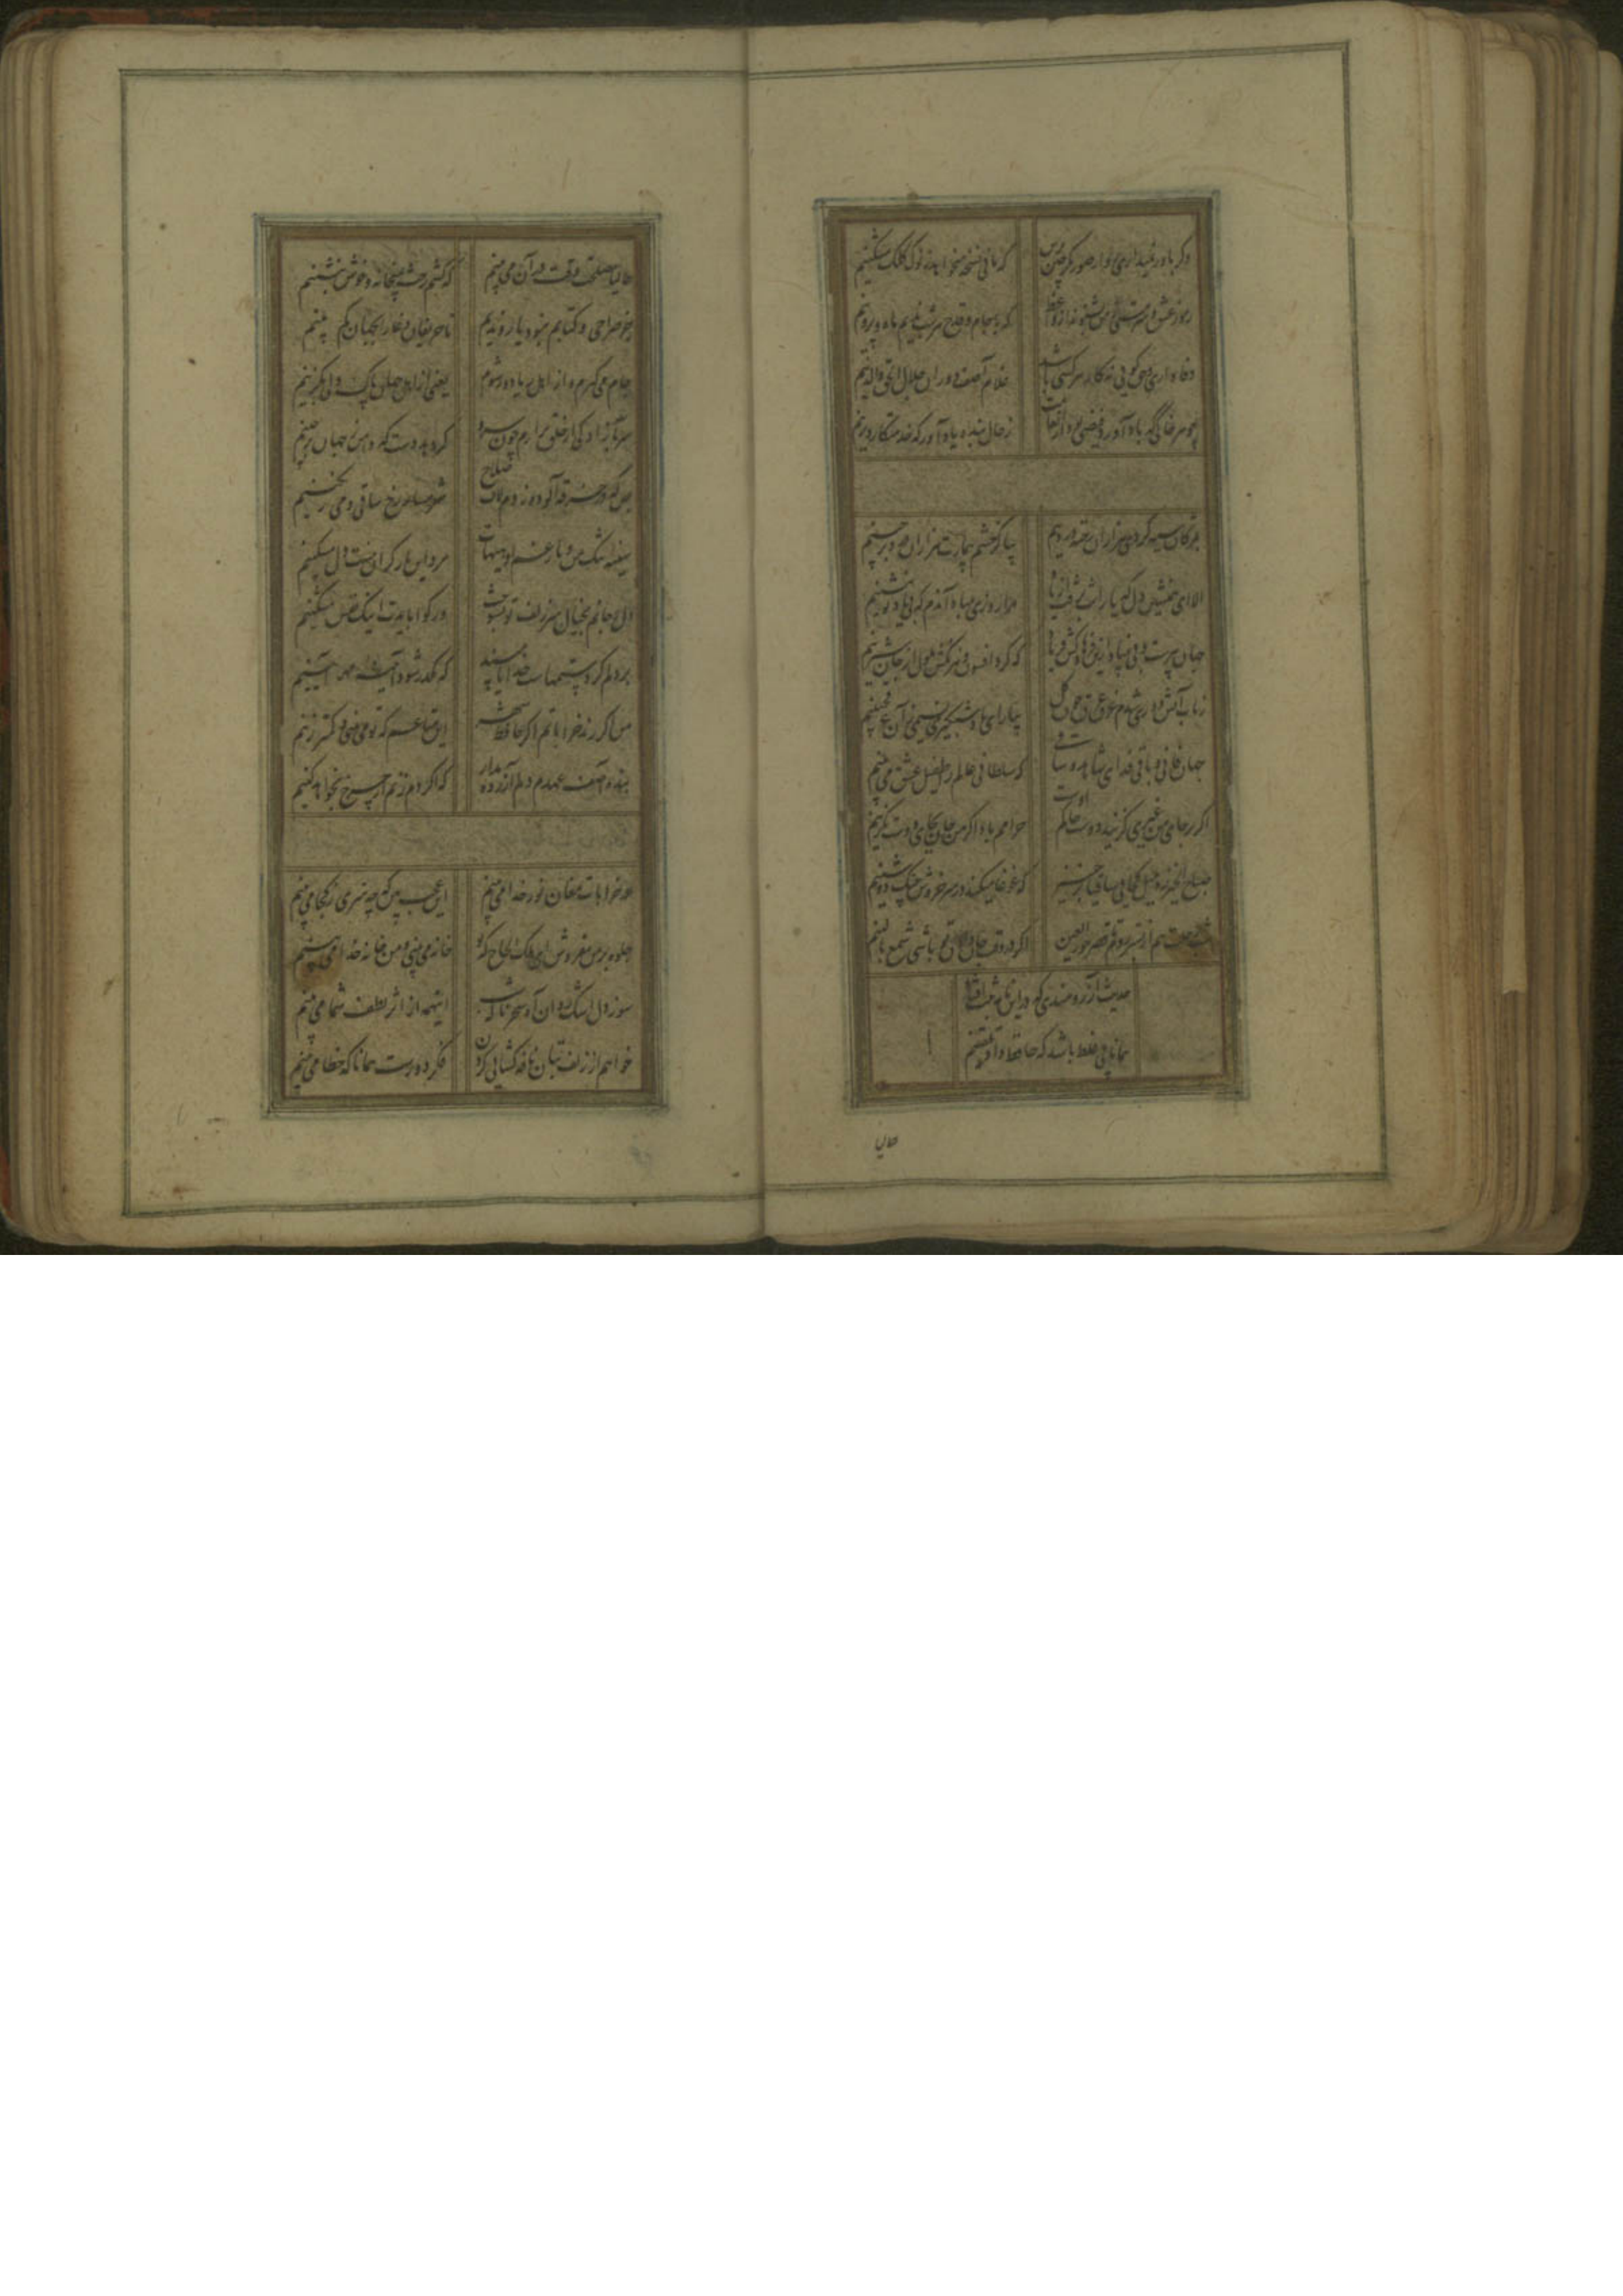 وکر باور نمیداری رو از صورتکر چین پرس که مانی نسخه میخواهد ز نوک کلک مشکینم
رموز عشق و سرمستی ز من بشنو نه از واعظ که با جام و قدح هر شب ندیم ماه و پروینم
وفاداری و حق کویی نه کار هر کسی باشد غلام آصف دوران جلال الحق والدینم
زحال بنده یاد آور که خدمتکار دیرینم
بمژکان سیه کردی هزاران رخنه در دینم بیا کز چشم بیمارت هزاران درد برچینم
الا ای همنشین دل که یارانت برفت از یاد مرا روزی مباد آندم که بی یاد تو بنشینم
جهان پیرست و بی بنیاد ازین فرهادکش فریاد که کرد افسون و نیرنکش ملول از جان شیرینم
ز تاب آتش دوری شدم غرق عرق چون کل بیار ای باد شبکیری نسیمی زآن عرقچینم
جهان فانی و باقی فدای شاهد و ساقی که سلطانی عالم را طفیل عشق می بینم
اکر بر جای من غیری کزیند دوست حاکم اوست حرامم باد اکر من جان بجای دوست بکزینم
صباح الخیر زد بلبل کجایی ساقیا برخیز که غوغا میکند در سر خروش چنک دوشینم
شب رحلت هم از بستر روم تا قصر حورالعین اکر در وقت جان دادن تو باشی شمع بالینم
حدیث آرزومندی که در این نامه ثبت افتاد
همانا بی غلط باشد که حافظ داد تلقینم
حالیا
حالیا مصلحت وقت در آن می بینم که کشم رخت بمیخانه و خوش بنشینم
جز صراحی و کتابم نبود یار و ندیم تا حریفان دغا را بجهان کم بینم
جام می کیرم و از اهل ریا دور شوم یعنی از اهل جهان پاک دلی بکزینم
سر بآزادکی از خلق برآرم چون سرو کر دهد دست که دامن ز جهان برچینم
بس که در خرقه آلوده زدم لاف صلاح شرمسار رخ ساقی و می رنکینم
سینه تنک من و بار غم او هیهات مرد این بار کران نیست دل مسکینم
بر دلم کرد ستمهاست خدایا مپسند که مکدر شود آیینه مهر آیینم
من اکر رند خراباتم اکر حافظ شهر این متاعم که تو می بینی و کمتر زینم
بنده آصف عهدم دلم آزرده مدار که اکر دم زنم از چرخ بخواهد کینم
در خرابات مغان نور خدا می بینم این عجب بین که چه نوری ز کجا می بینم
جلوه بر من مفروش ای ملک الحاج که تو خانه می بینی و من خانه خدا می بینم
سوز دل اشک روان آه سحر ناله شب اینهمه از اثر لطف شما می بینم
خواهم از زلف بتان نافه کشایی کردن فکر دورست همانا که خطا می بینم